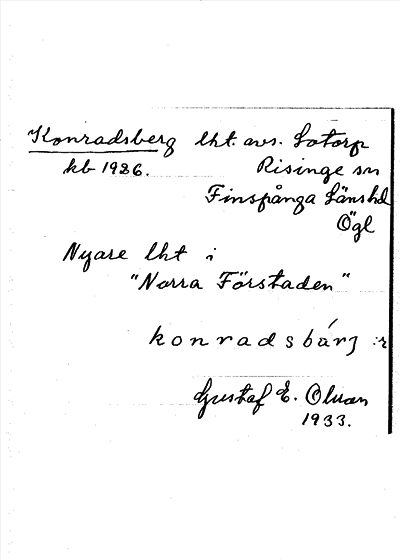 Konradsberg lht. avs. Lotorp
kb 1926. Risinge sn
Finspånga Länshd
Ögl
Nyare lht i
"Norra Förstaden"
konradsbárj :r
Gustaf E. Olsson
1933.